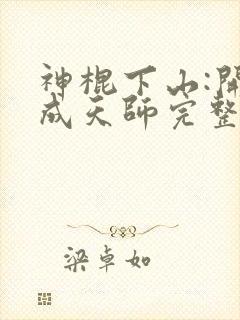 神棍下山:開
成天师完整
梁卓如